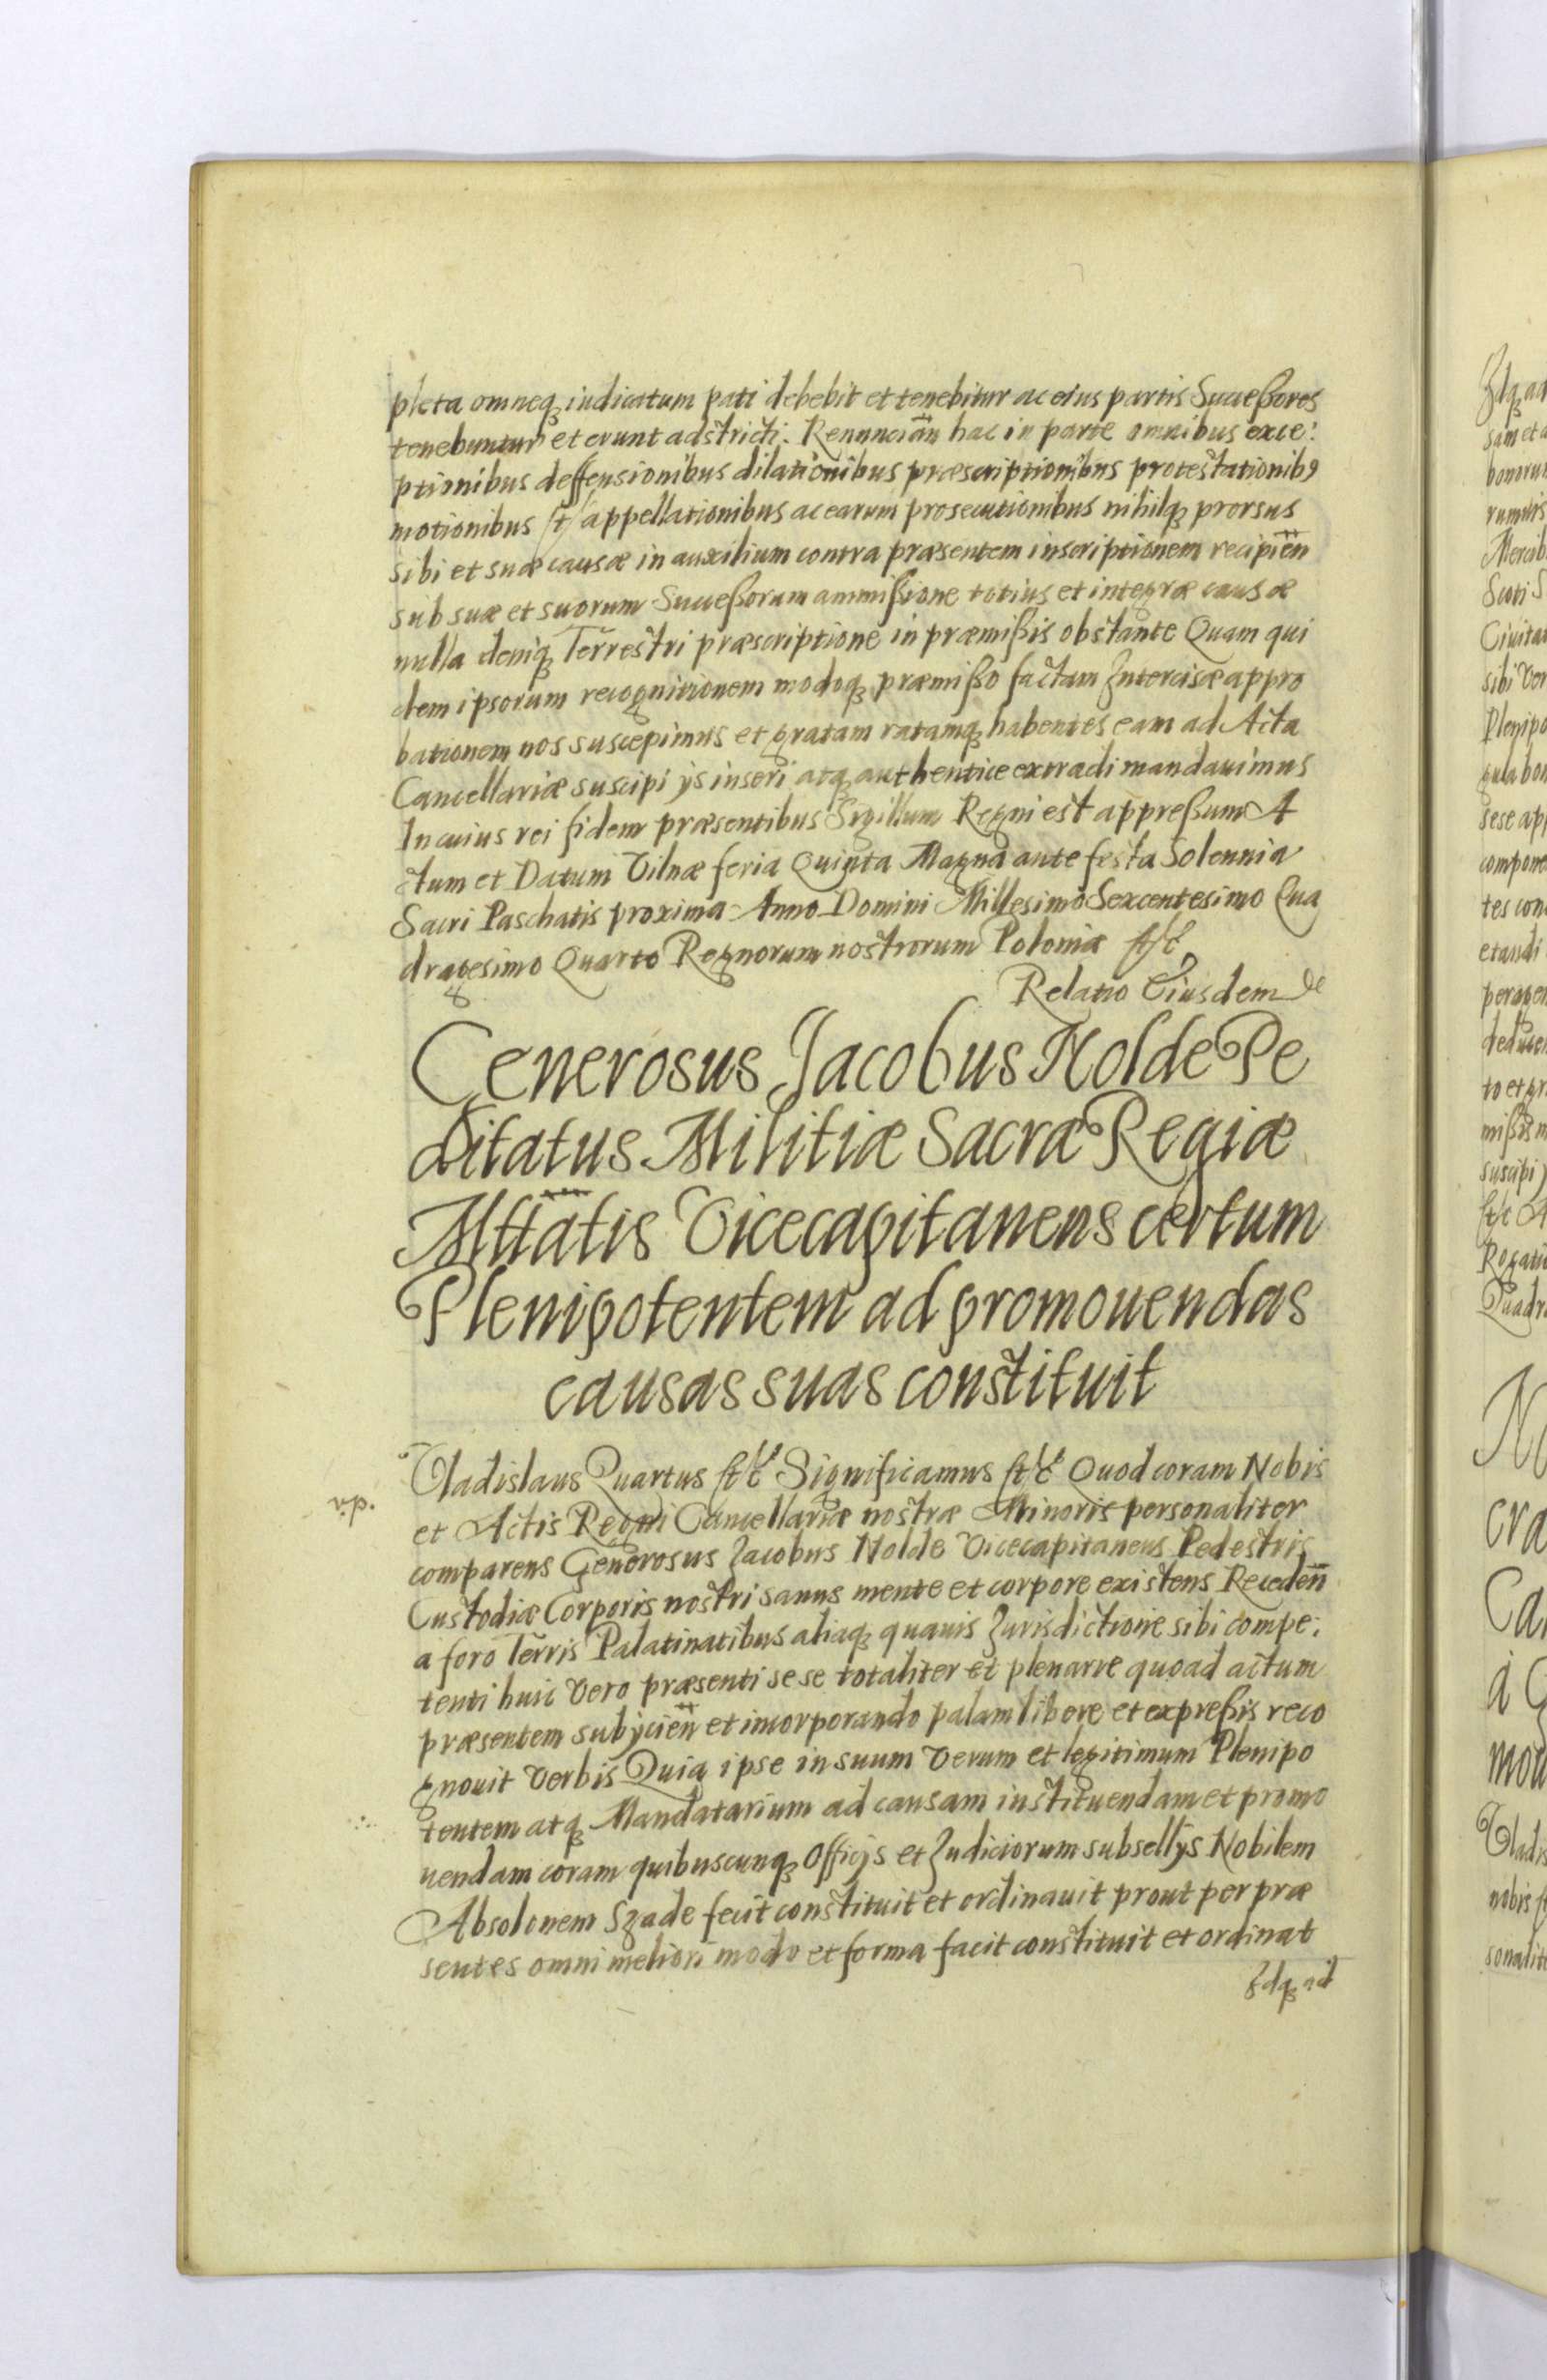 pleta omneq iudicatum pati debebit et tenebitur ac eius partis Successores
tenebuntur et erunt adstricti. Renuncian̄ hac in parte omnibus exce:
ptionibus deffensionibus dilationibus præscriptionibus protestationibꝰ
motionibus et appellationibus ac earum prosecutionibus nihilq prorsus
sibi et suæ causæ in auxilium contra præsentem inscriptionem recipien̄
sub suæ et suorum Successorum ammissione totius et integræ causæ
nulla deniq Terrestri præscriptione in præmissis obstante Quam qui
dem ipsorum recognitionem modoq præmisso factam Intercisæ appro
bationem nos suscepimus et gratam ratamq habentes eam ad Acta
Cancellariæ suscipi ijs inseri atq authentice extradi mandauimus
In cuius rei fidem præsentibus Sigillum Regni est appressum A
ctum et Datum Vilnæ feria Quinta Magna ante festa Solennia
Sacri Paschatis proxima Anno Domini Millesimo Sexcentesimo Qua
dragesimo Quarto Regnorum nostrorum Poloniæ etc
Relatio Eiusdem
Generosus Jacobus Nolde Pe
ditatus Militiæ Sacræ Regiæ
Mttatis Vicecapitaneus certum
Plenipotentem ad promouendas
causas suas constituit
Vladislaus Quartus etc Significamus etc Quod coram Nobis
et Actis Regni Cancellariæ nostræ Minoris personaliter
comparens Generosus Jacobus Nolde Vicecapitaneus Pedestris
Custodiæ Corporis nostri sanus mente et corpore existens Receden̄
a foro Terris Palatinatibus aliaq quauis Jurisdictione sibi compe:
tenti huic vero præsenti se se totaliter et plenarie quoad actum
præsentem subijcien̄ et incorporando palam libere et expressis reco
gnouit verbis Quia ipse in suum verum et legitimum Plenipo
tentem atq Mandatarium ad causam instituendam et promo
uendam coram quibuscunq Officijs et Judiciorum subsellijs Nobilem
Absolonem Szade fecit constituit et ordinauit prout per præ
sentes omni meliori modo et forma facit constituit et ordinat
Idq ad